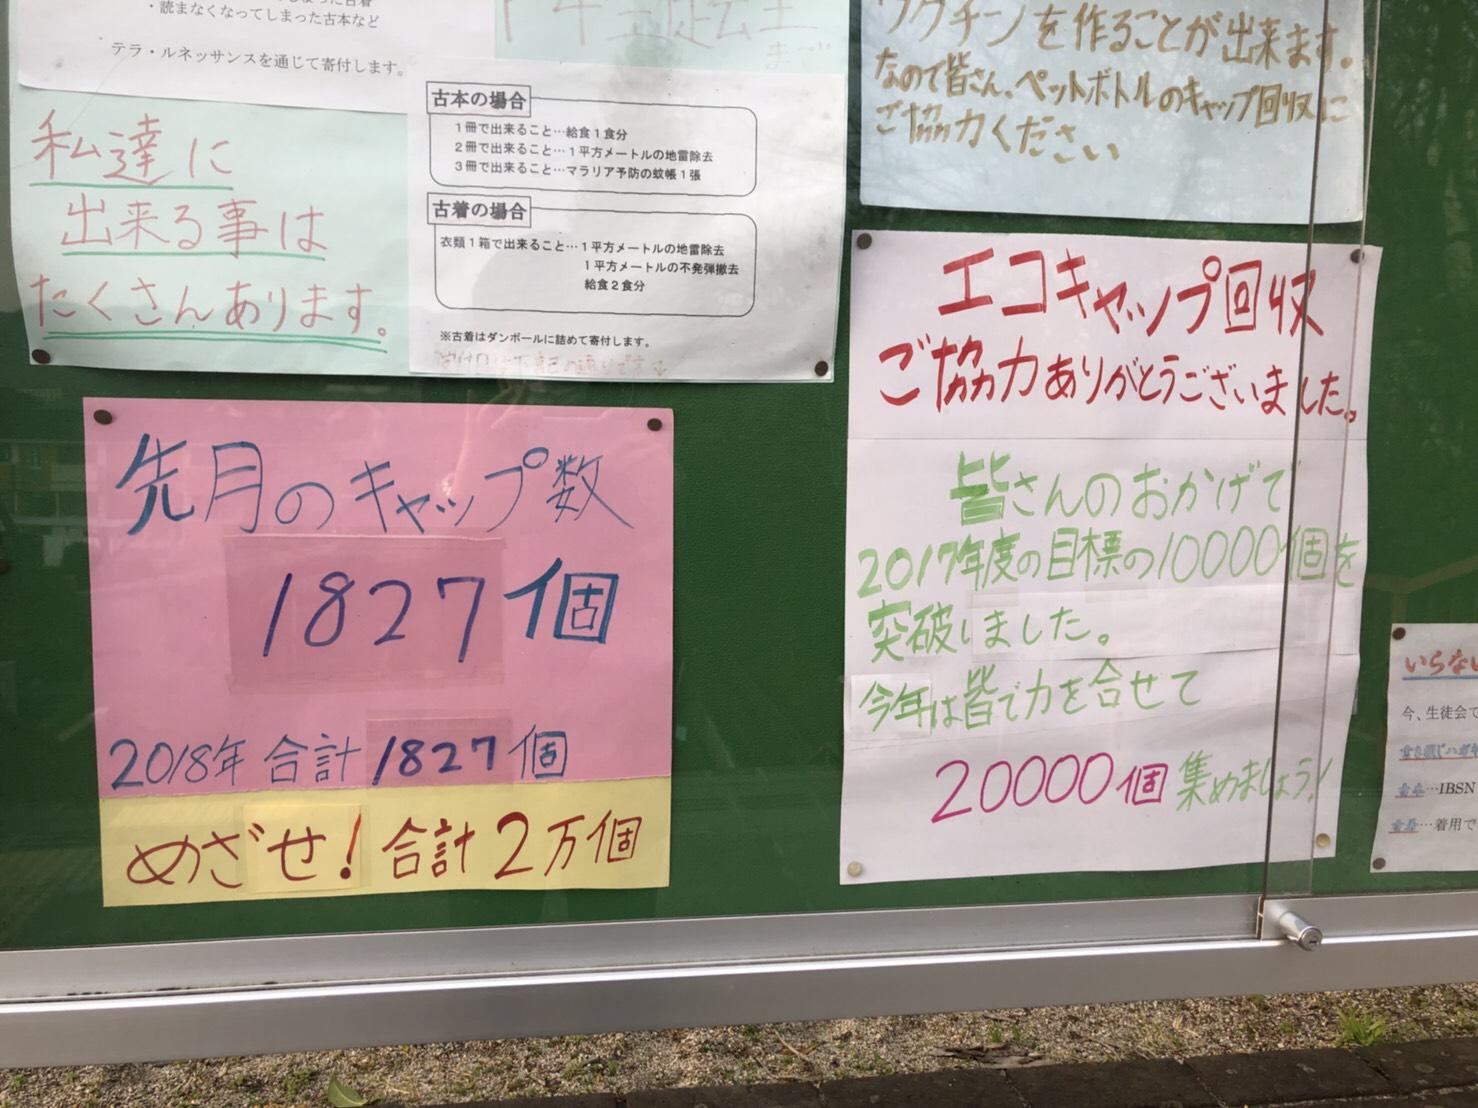 ・読まなくなってしまった古本など
テラ・ルネッサンスを通じて寄付します。
私達に
出来る事は
たくさんあります。
まで
古本の場合
1冊で出来ること…給食1食分
2冊で出来ること…1平方メートルの地雷除去
3冊で出来ること…マラリア予防の蚊帳1張
古着の場合
衣類1箱で出来ること…1平方メートルの地雷除去
1平方メートルの不発弾撤去
給食2食分
※古着はダンボールに詰めて寄付します。
ワクチンを作ることが出来ます。
なので皆さん、ペットボトルのキャップ回収に
ご協力ください
先月のキャップ数
1827個
2018年 合計 1827個
めざせ! 合計2万個
エコキャップ回収
ご協力ありがとうございました。
皆さんのおかげで
2017年度の目標の10000個を
突破しました。
今年は皆で力を合せて
20000個 集めましょう!
いらない
今、生徒会で
…IBSN
…着用で